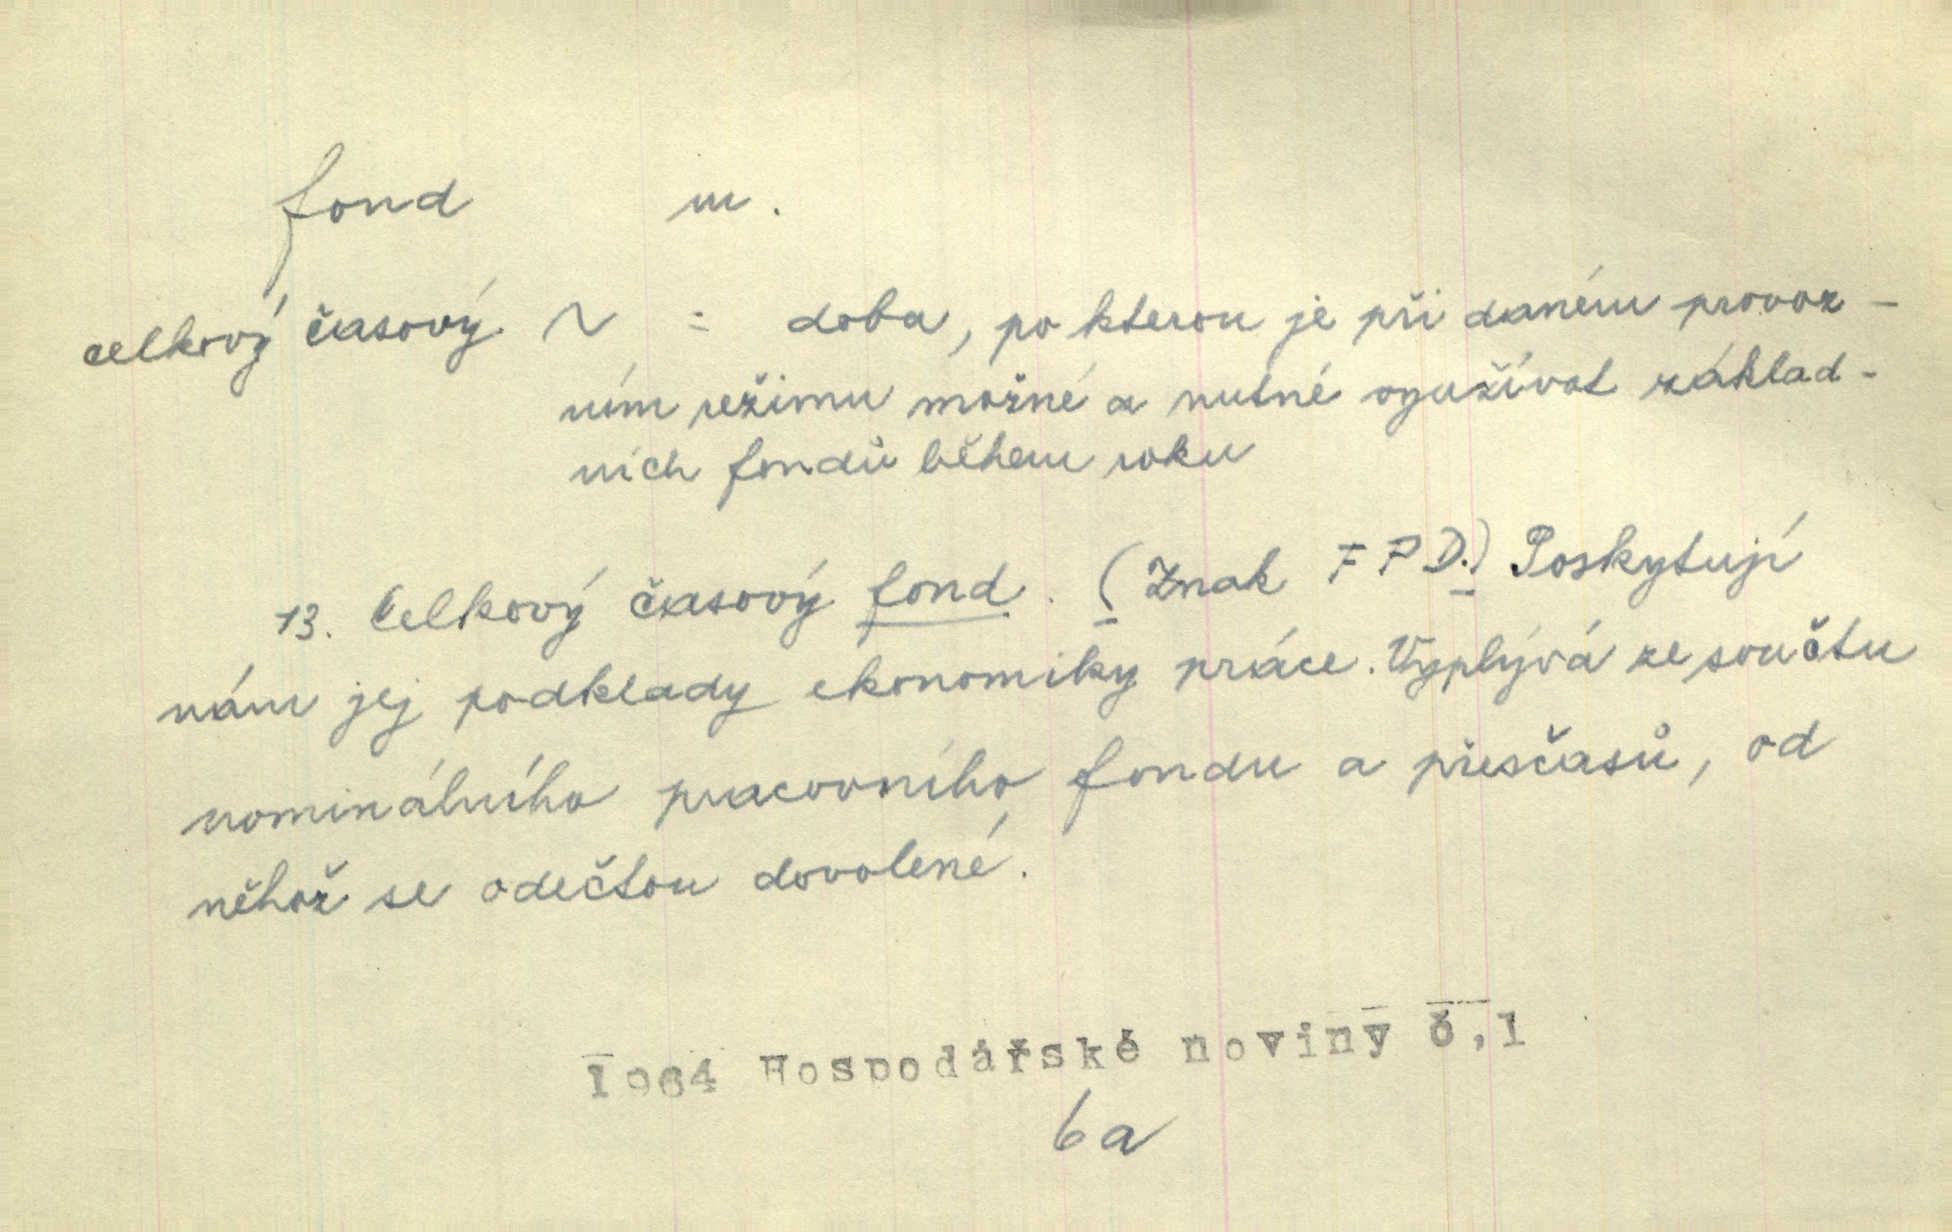 fond m.
celkový časový ~ = doba, po kterou je při daném provoz-
ním režimu možné a nutné využívat základ-
ních fondů během roku
13. Celkový časový fond. (Znak FPD.) Poskytují
nám jej podklady ekonomiky práce. Vyplývá ze součtu
nominálního pracovního fondu a přesčasů, od
něhož se odečtou dovolené.
1964 Hospodářské noviny č,1
6a